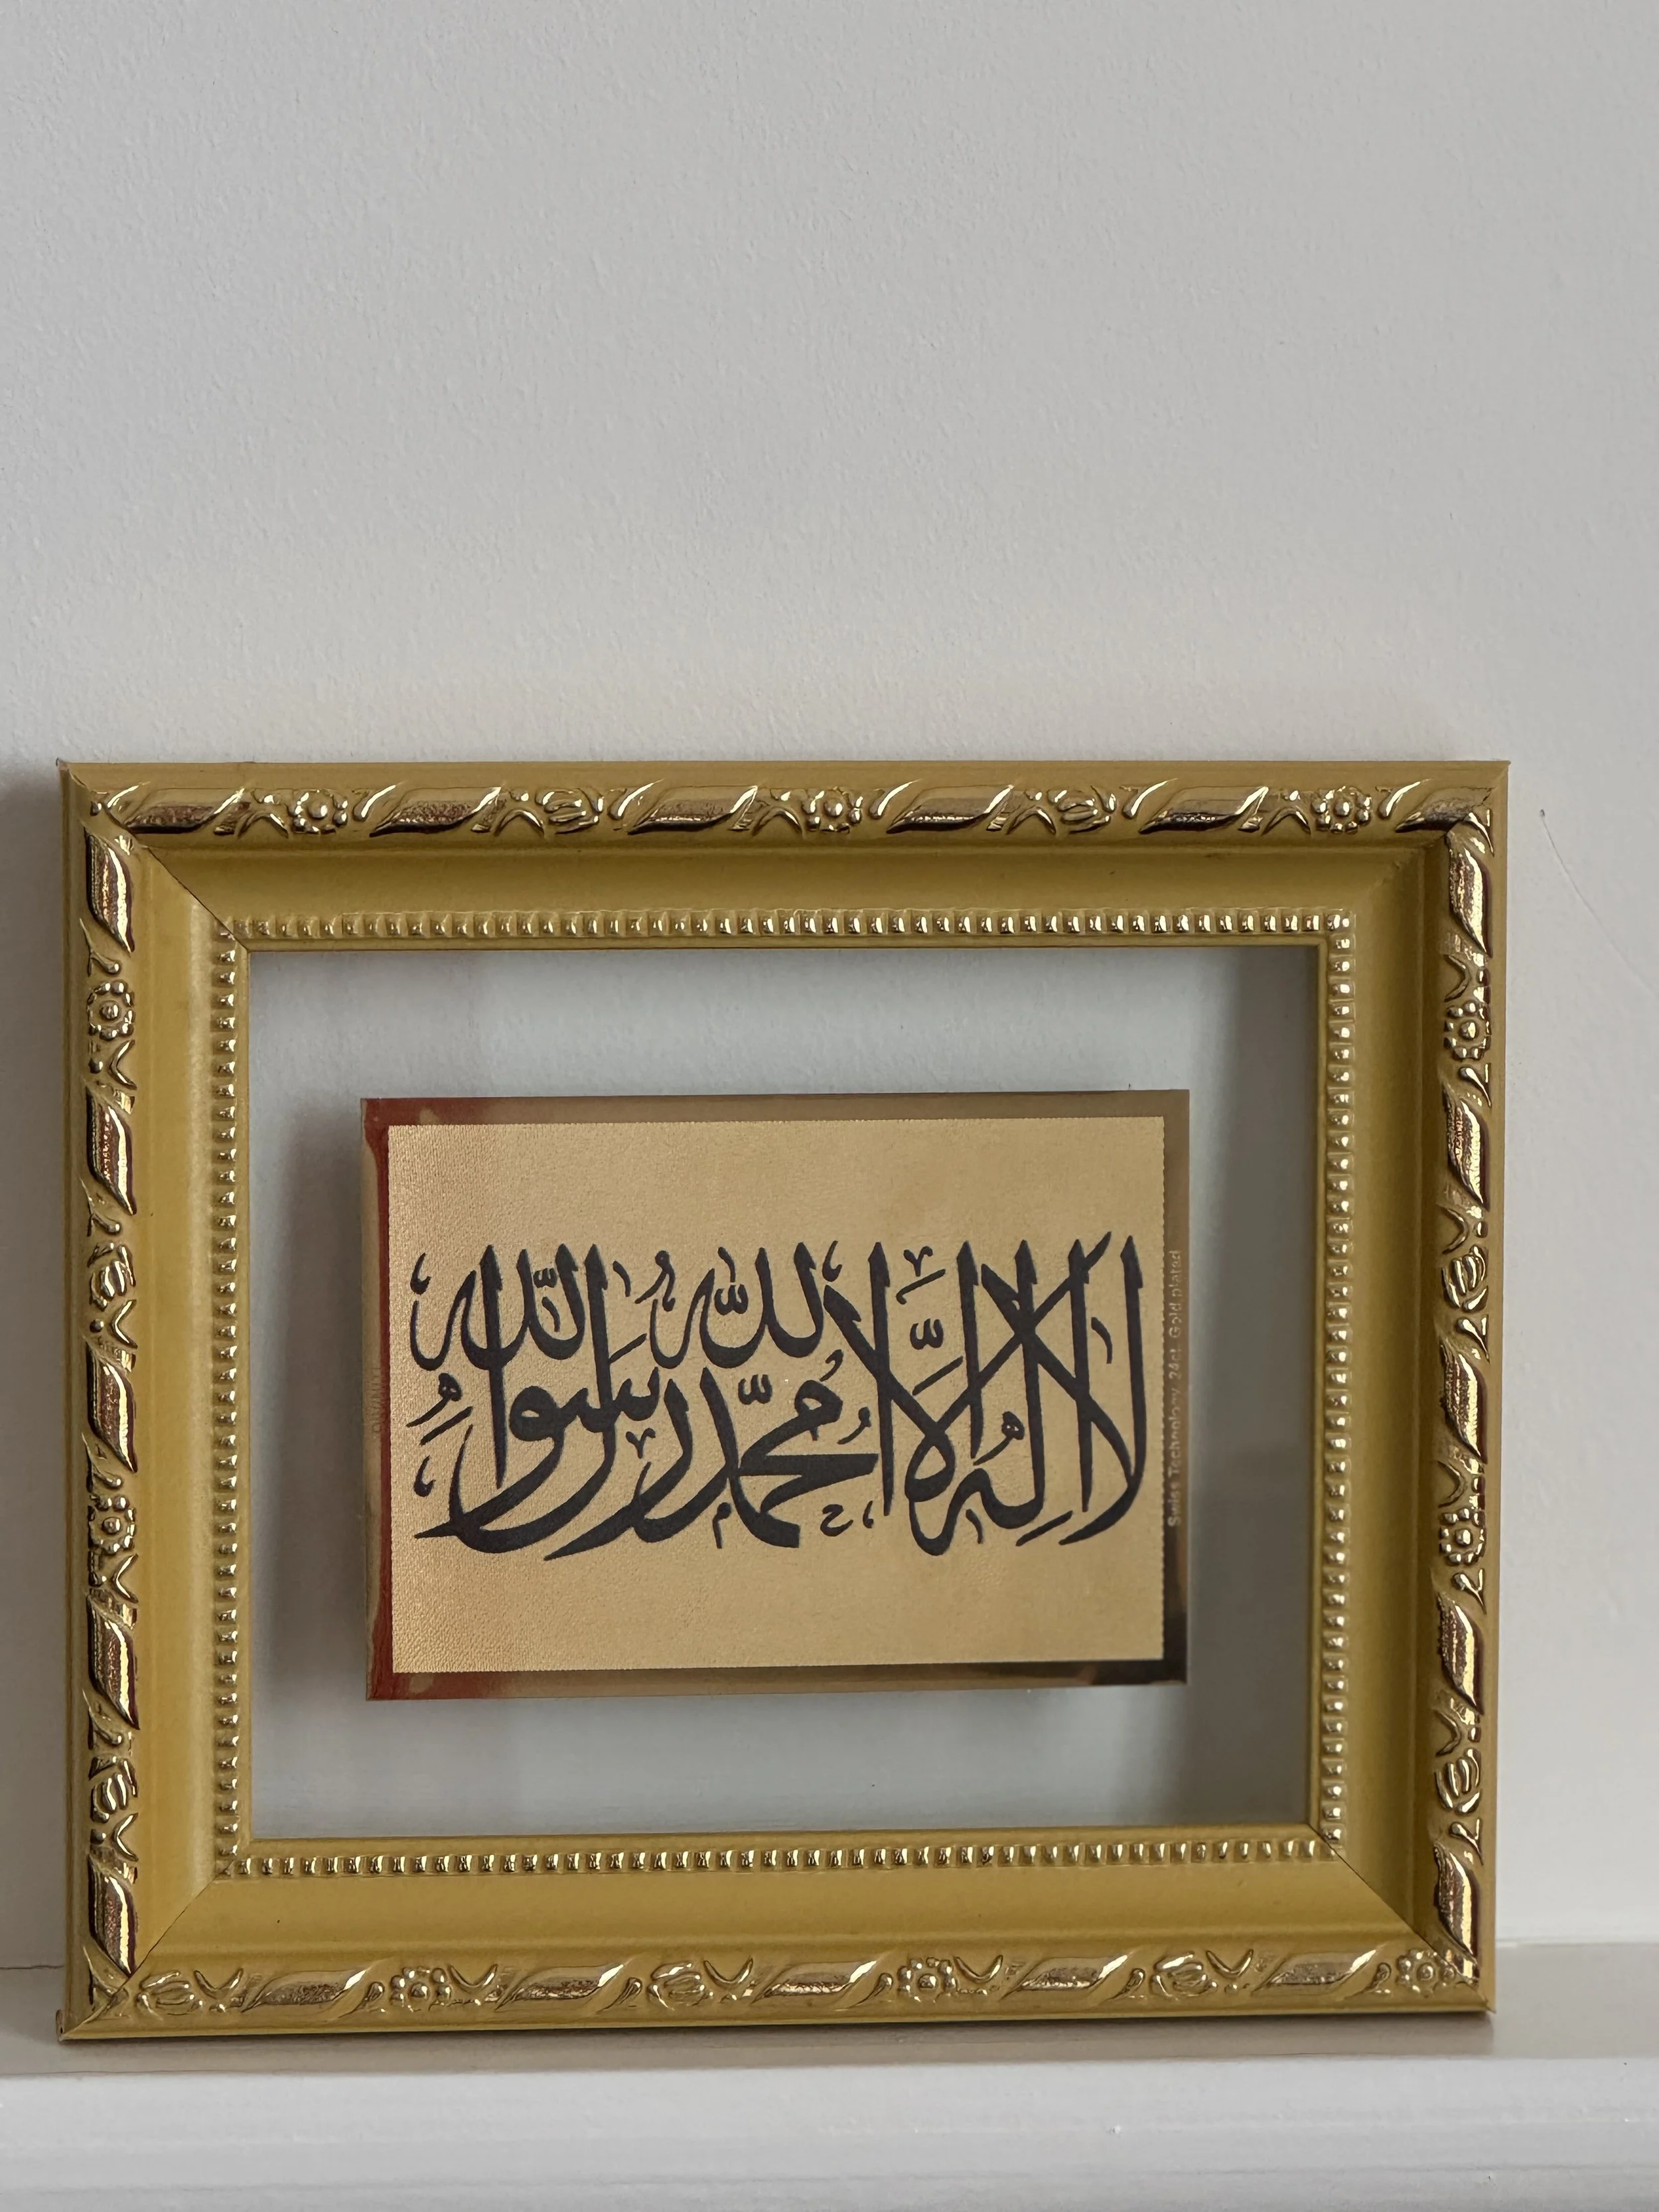 لا إله إلا الله محمد رسول الله
Swiss Technology 24ct. Gold plated